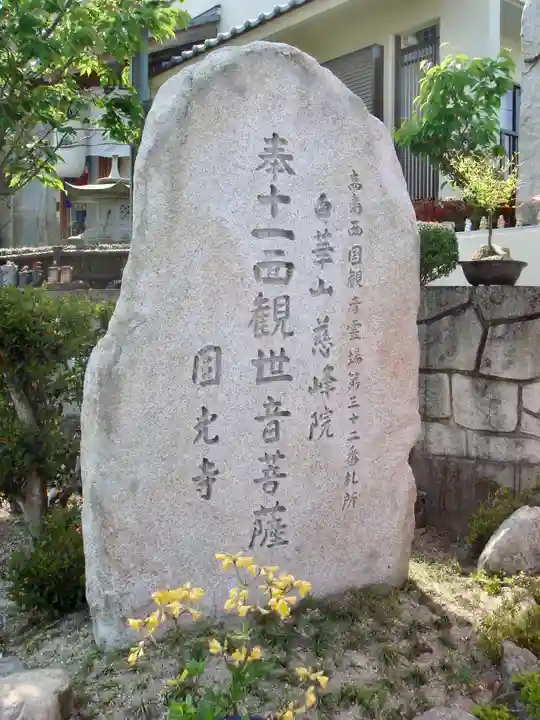 高島西国観音霊場第三十二番札所
白華山慈峰院
奉十一面観世音菩薩
圓光寺